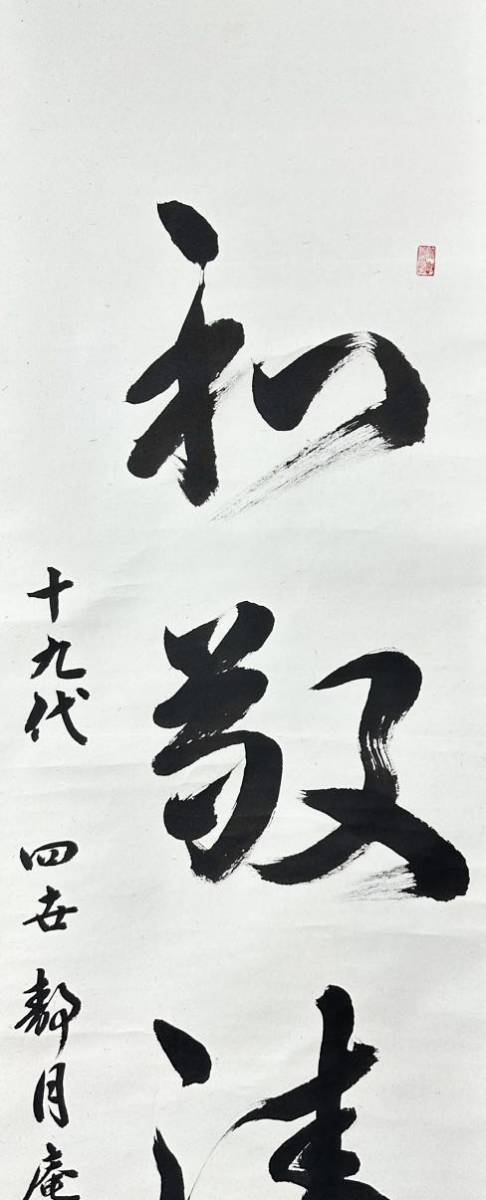 和敬清
十九代 四世 静月庵